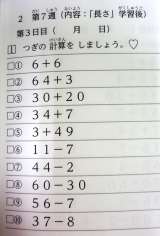 2 第7週(内容:「長さ」学習後)
第3日目( 月 日)
1 つぎの計算を しましょう。♡
□① 6+6
□② 64+3
□③ 30+20
□④ 34+7
□⑤ 3+49
□⑥ 11-7
□⑦ 44-2
□⑧ 60-30
□⑨ 56-7
□⑩ 37-8